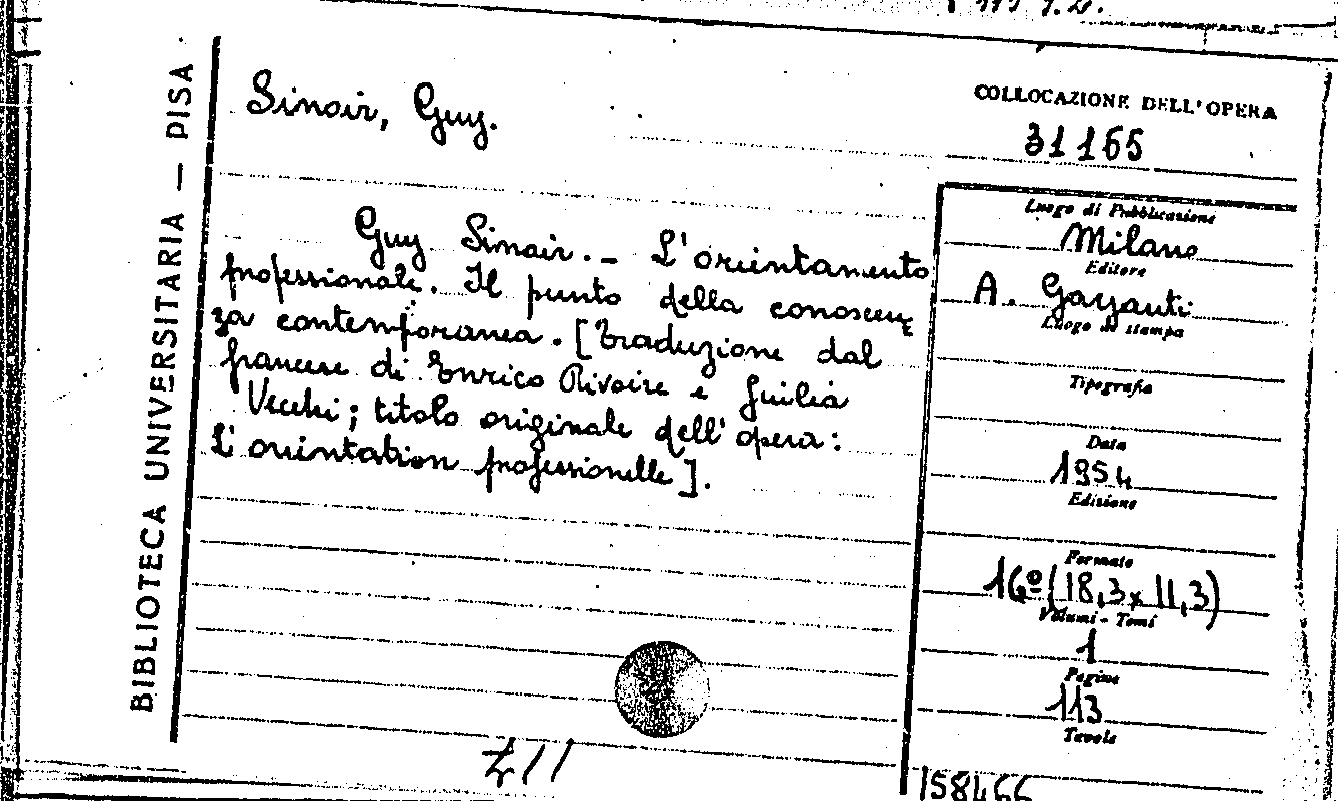 BIBLIOTECA UNIVERSITARIA — PISA
Sinoir, Guy.
COLLOCAZIONE DELL'OPERA
31165
Guy Sinoir. - L'orientamento
professionale. Il punto della conoscen
za contemporanea. [Traduzione dal
francese di Enrico Rivoire e Giulia
Vecchi; titolo originale dell'opera:
L'orientation professionelle].
Luogo di Pubblicazione
Milano
Editore
A. Garzanti
Luogo di stampa
Tipografia
Data
1954
Edizione
Formato
16º (18,3 x 11,3)
Volumi - Tomi
1
Pagine
113
Tavole
158466